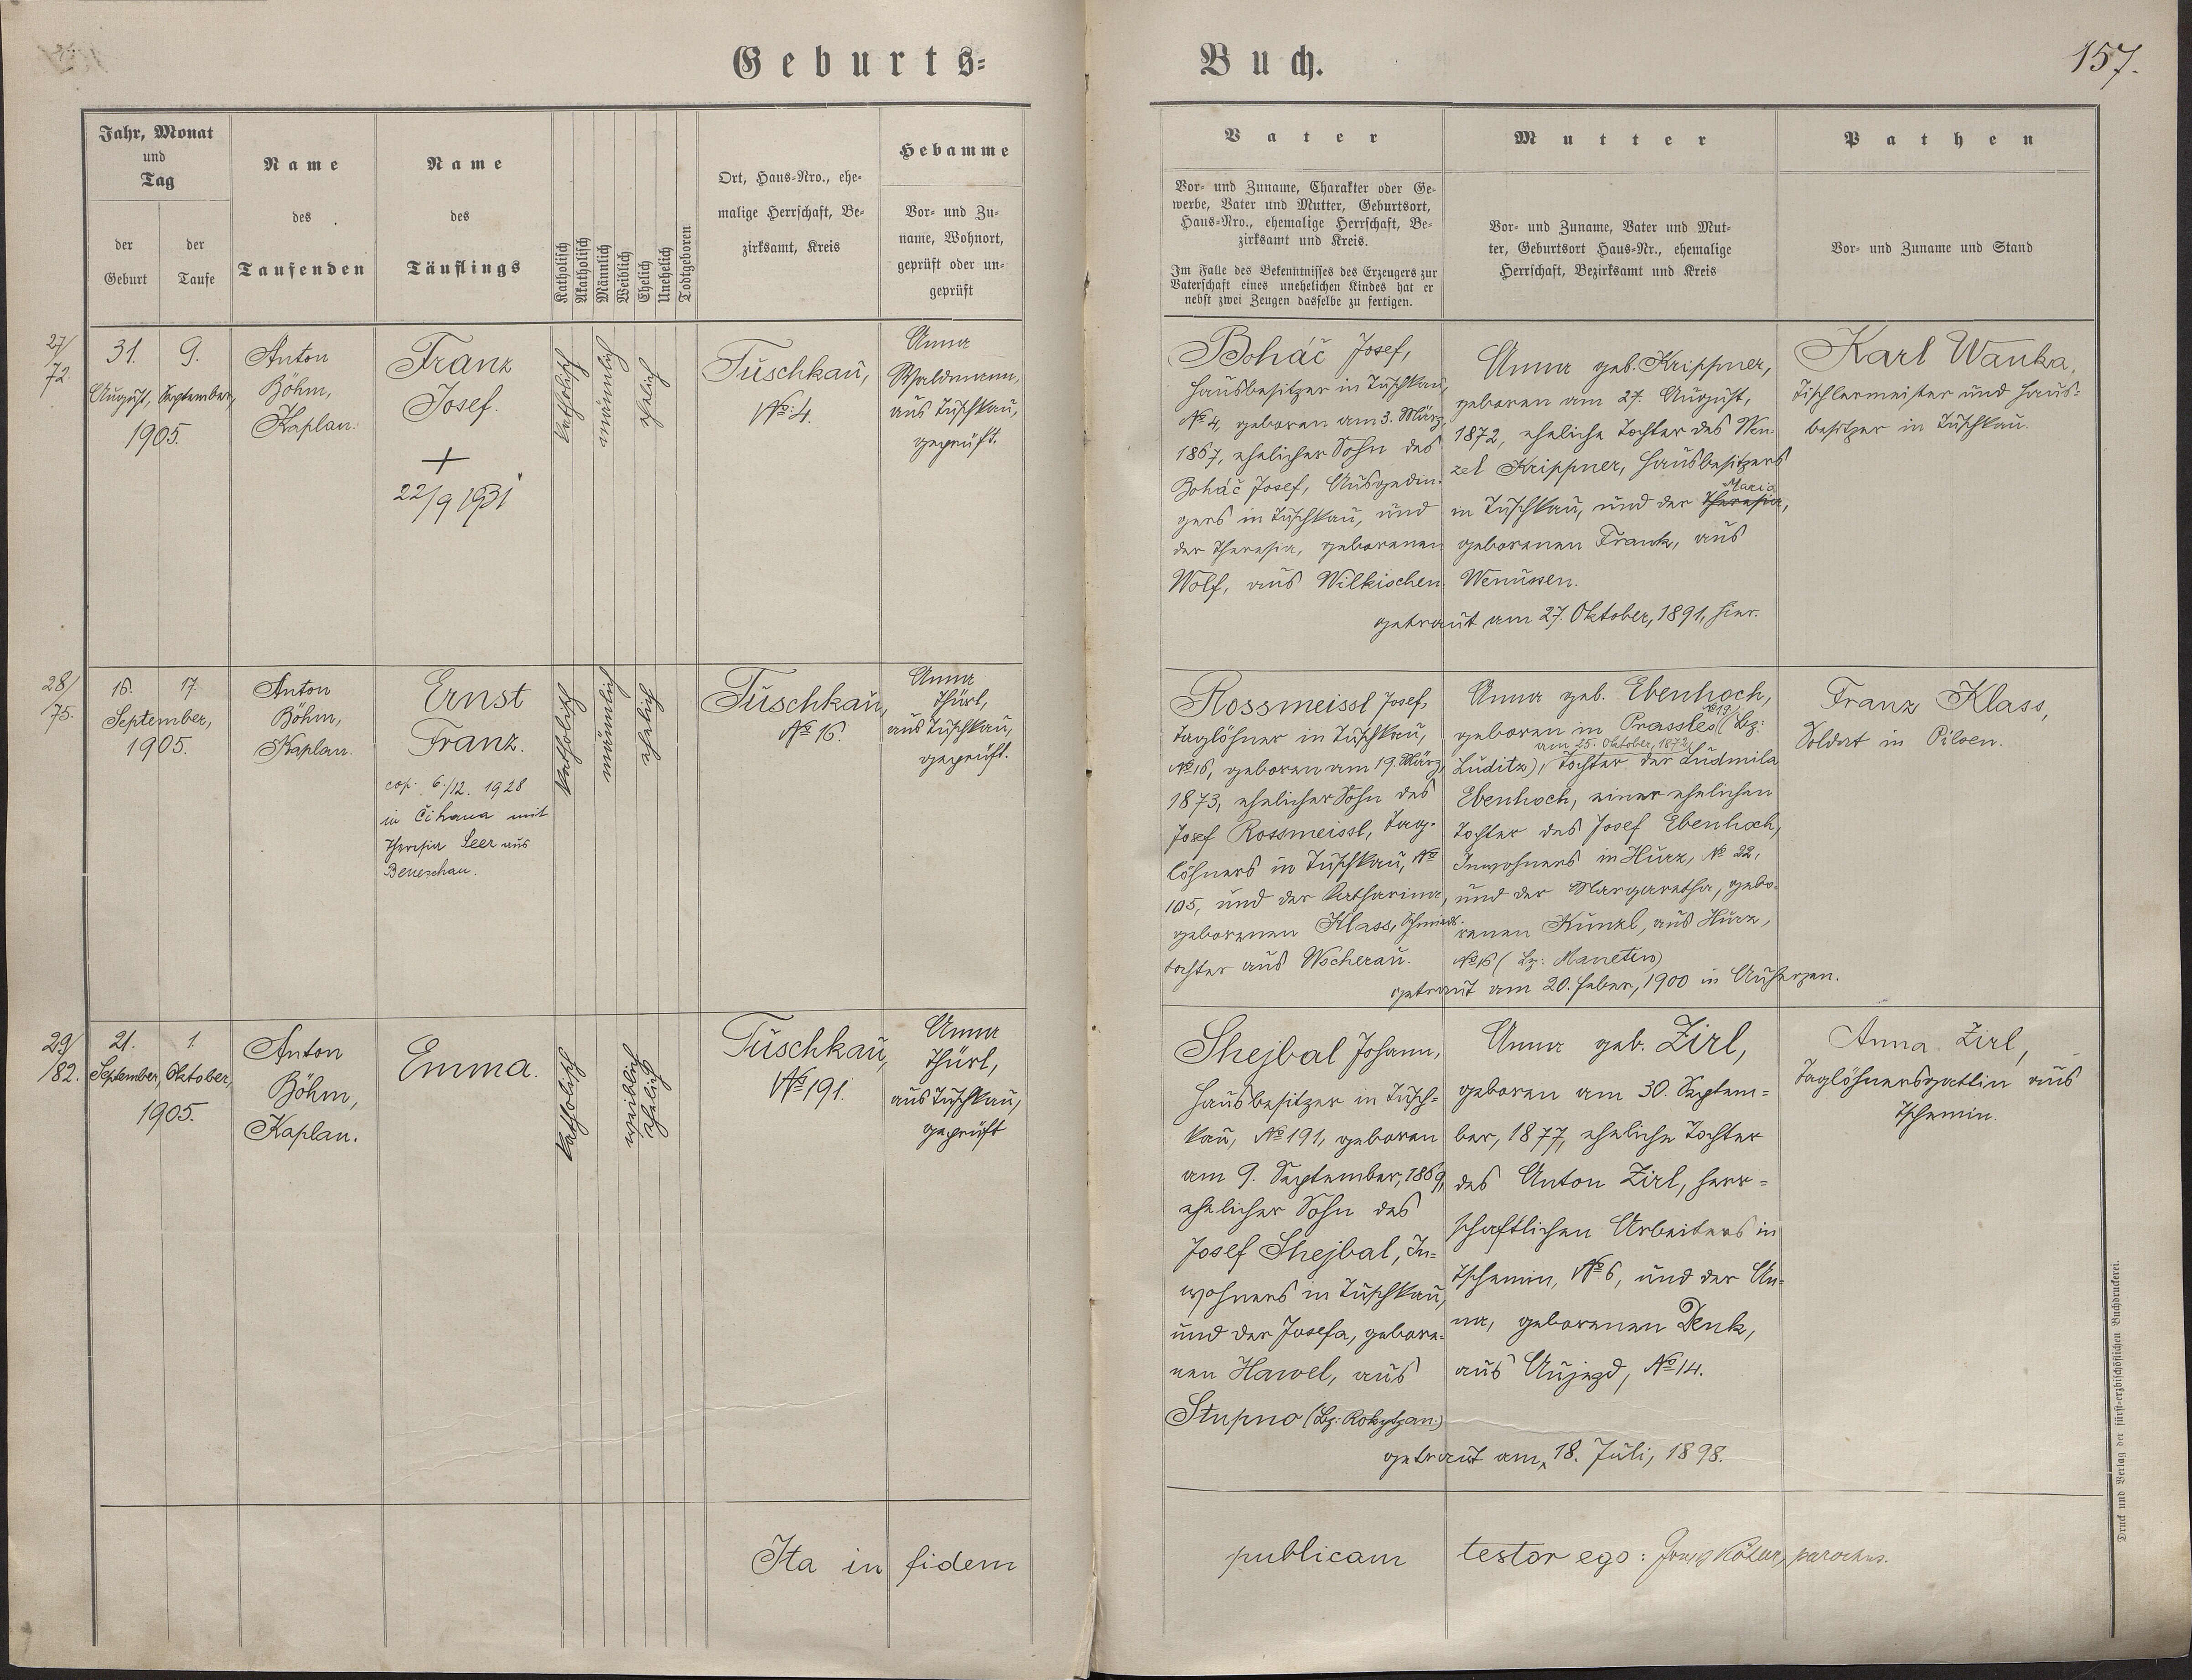 Geburts=
Buch.
157.
Jahr, Monat
und
Tag
der
Geburt
der
Taufe
Name
des
Taufenden
Name
des
Täuflings
Katholisch
Akatholisch
Männlich
Weiblich
Ehelich
Unehelich
Todtgeboren
Ort, Haus=Nro., ehe=
malige Herrschaft, Be=
zirksamt, Kreis
Hebamme
Vor= und Zu=
name, Wohnort,
geprüft oder un=
geprüft
Vater
Vor= und Zuname, Charakter oder Ge=
werbe, Vater und Mutter, Geburtsort,
Haus=Nro., ehemalige Herrschaft, Be=
zirksamt und Kreis.
Im Falle des Bekenntnisses des Erzeugers zur
Vaterschaft eines unehelichen Kindes hat er
nebst zwei Zeugen dasselbe zu fertigen.
Mutter
Vor= und Zuname, Vater und Mut=
ter, Geburtsort Haus=Nr., ehemalige
Herrschaft, Bezirksamt und Kreis
Pathen
Vor= und Zuname und Stand
27/
72.
31.
August,
9.
September,
1905.
Anton
Böhm,
Kaplan.
Franz
Josef.
+
22/9 1931
katholisch
männlich
ehelich
Tuschkau,
No: 4.
Anna
Waldmann,
aus Tuschkau,
geprüft.
Boháč Josef,
Hausbesitzer in Tuschkau,
No 4, geboren am 3. März
1867, ehelicher Sohn des
Boháč Josef, Ausgedin-
gers in Tuschkau, und
der Theresia, geborenen
Wolf, aus Wilkischen.
Anna geb. Krippner,
geboren am 27. August,
1872, eheliche Tochter des Wen-
zel Krippner, Hausbesitzers
Maria
in Tuschkau, und der Theresia,
geborenen Frank, aus
Wenussen.
getraut am 27. Oktober, 1891, hier.
Karl Wanka,
Tischlermeister und Haus=
besitzer in Tuschkau.
28/
75.
16.
17.
September,
1905.
Anton
Böhm,
Kaplan.
Ernst
Franz.
cop. 6./12. 1928
in Čihana mit
Theresia Seer aus
Beneschau.
katholisch
männlich
ehelich
Tuschkau,
No 16.
Anna
Thürl,
aus Tuschkau,
geprüft.
Rossmeissl Josef,
Taglöhner in Tuschkau,
No 16, geboren am 19. März,
1873, ehelicher Sohn des
Josef Rossmeissl, Tag-
löhners in Tuschkau, No
105, und der Katharina,
geborenen Klass, Schmieds-
tochter aus Wscherau.
Anna geb. Ebenhoch,
No 19
geboren in Prassles (Bz:
am 25. Oktober, 1872,
Luditz), Tochter der Ludmila
Ebenhoch, einer ehelichen
Tochter des Josef Ebenhoch,
Inwohners in Hurz, No 22,
und der Margaretha, gebo-
renen Künzl, aus Hurz,
No 16 (Bz: Manetin)
getraut am 20. Feber, 1900 in Auherzen.
Franz Klass,
Soldat in Pilsen.
29/
82.
21.
September,
1.
Oktober,
1905.
Anton
Böhm,
Kaplan.
Emma.
katholisch
weiblich
ehelich
Tuschkau,
No 191.
Anna
Thürl,
aus Tuschkau,
geprüft
Shejbal Johann,
Hausbesitzer in Tusch=
kau, No 191, geboren
am 9. September, 1869,
ehelicher Sohn des
Josef Shejbal, In=
wohners in Tuschkau,
und der Josefa, gebore=
nen Hawel, aus
Stupno (Bz: Rokytzan.)
Anna geb. Zirl,
geboren am 30. Septem=
ber, 1877, eheliche Tochter
des Anton Zirl, herr=
schaftlichen Arbeiters in
Tschemin, No 6, und der An=
na, geborenen Denk,
aus Aujezd, No 14.
getraut am 18. Juli, 1898.
Anna Zirl,
Taglöhnersgattin aus
Tschemin.
Ita in fidem publicam testor ego: parochus.
Druck und Verlag der fürst=erzbischöflichen Buchdruckerei.